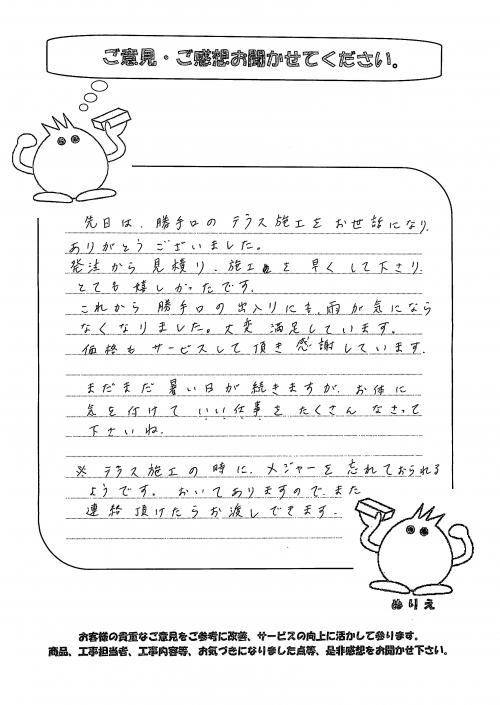 ご意見・ご感想お聞かせてください。
先日は、勝手口の テラス施工を お世話になり、
ありがとう ございました。
発注から 見積り、施工を 早く して下さり、
とても 嬉しかったです。
これから 勝手口の 出入りにも、雨が 気になら
なくなりました。大変 満足しています。
価格も サービスして 頂き 感謝しています。
まだまだ 暑い日が 続きますが、お体に
気を付けて いい仕事を たくさん なさって
下さいね。
※ テラス施工の 時に、メジャーを 忘れておられる
ようです。 おいてありますので、また
連絡 頂けたら お渡しできます。
ぬりえ
お客様の貴重なご意見をご参考に改善、サービスの向上に活かして参ります。
商品、工事担当者、工事内容等、お気づきになりました点等、是非感想をお聞かせ下さい。